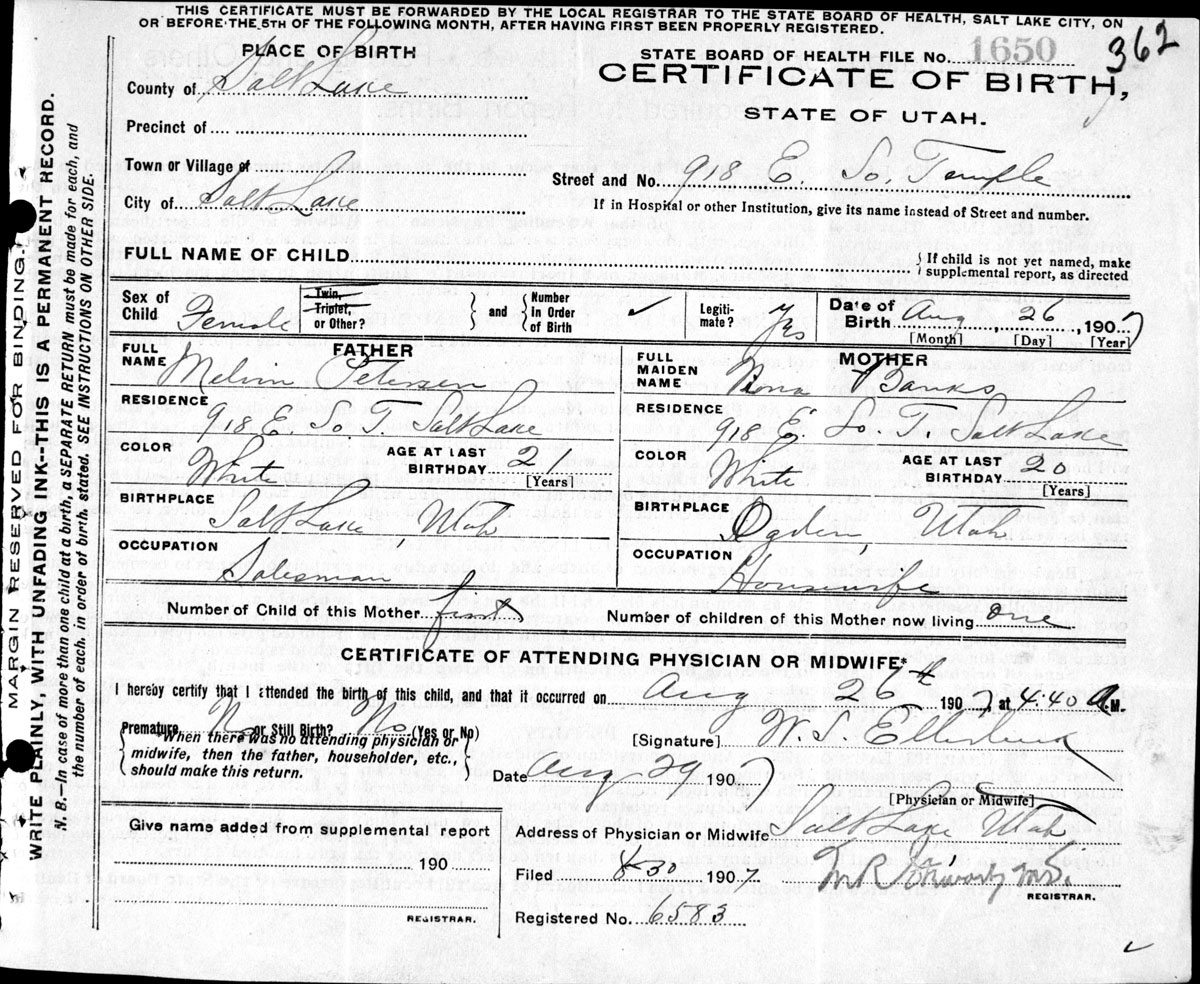 THIS CERTIFICATE MUST BE FORWARDED BY THE LOCAL REGISTRAR TO THE STATE BOARD OF HEALTH, SALT LAKE CITY, ON
OR BEFORE THE 5TH OF THE FOLLOWING MONTH, AFTER HAVING FIRST BEEN PROPERLY REGISTERED.
362
PLACE OF BIRTH
STATE BOARD OF HEALTH FILE No. 1650
County of Salt Lake
CERTIFICATE OF BIRTH,
STATE OF UTAH.
Precinct of
Town or Village of
Street and No. 918 E. So. Temple
City of Salt Lake
If in Hospital or other Institution, give its name instead of Street and number.
FULL NAME OF CHILD
If child is not yet named, make
supplemental report, as directed
Sex of Child Female
Twin, Triplet, or Other?
and
Number in Order of Birth ✓
Legiti-mate? Yes
Date of Birth Aug, 26, 1907
[Month] [Day] [Year]
FATHER
FULL NAME Melvin Petersen
RESIDENCE 918 E So T. Salt Lake
COLOR White
AGE AT LAST BIRTHDAY 21
[Years]
BIRTHPLACE Salt Lake, Utah
OCCUPATION Salesman
MOTHER
FULL MAIDEN NAME Banks
RESIDENCE 918 E. So. T. Salt Lake
COLOR White
AGE AT LAST BIRTHDAY 20
[Years]
BIRTHPLACE Ogden, Utah
OCCUPATION Housewife
Number of Child of this Mother first
Number of children of this Mother now living one
CERTIFICATE OF ATTENDING PHYSICIAN OR MIDWIFE*
I hereby certify that I attended the birth of this child, and that it occurred on Aug 26th 1907, at 4:40 A.M.
Premature No or Still Birth? No (Yes or No)
When there was no attending physician or
midwife, then the father, householder, etc.,
should make this return.
[Signature] W. S.
Date Aug 29 1907
[Physician or Midwife]
Give name added from supplemental report
190
REGISTRAR.
Address of Physician or Midwife Salt Lake Utah
Filed 8-30 1907.
REGISTRAR.
Registered No. 6583
MARGIN RESERVED FOR BINDING.
WRITE PLAINLY, WITH UNFADING INK--THIS IS A PERMANENT RECORD.
N. B.--In case of more than one child at a birth, a SEPARATE RETURN must be made for each, and
the number of each, in order of birth, stated. SEE INSTRUCTIONS ON OTHER SIDE.